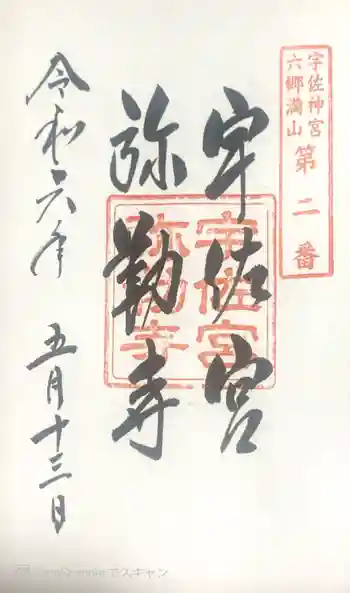 宇佐神宮
六郷満山
第二番
宇佐宮
弥勒寺
宇佐宮
弥勒寺
令和六年 五月十三日
でスキャン